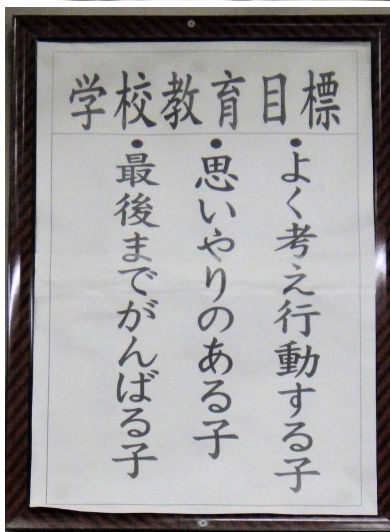 学校教育目標
•よく考え行動する子
•思いやりのある子
•最後までがんばる子